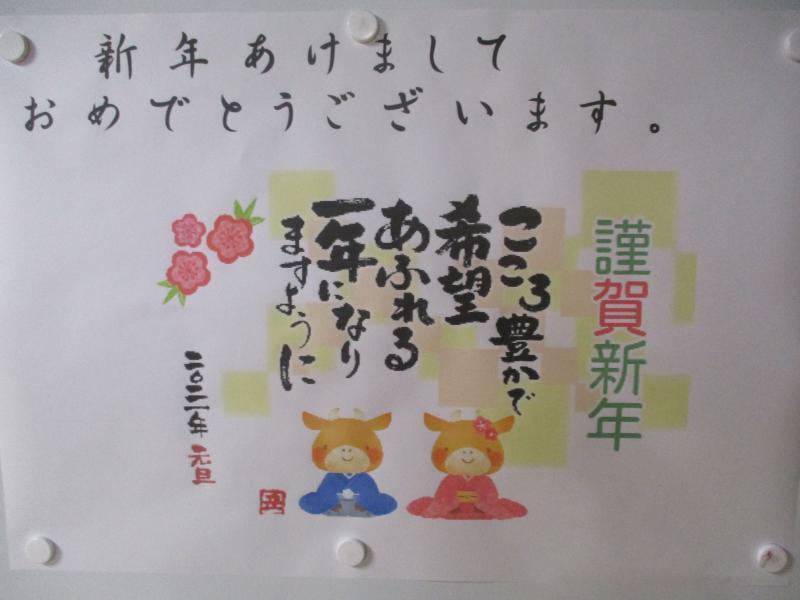 新年あけまして
おめでとうございます。
謹賀新年
こころ豊かで
希望
あふれる
一年になり
ますように
二〇二一年 元旦